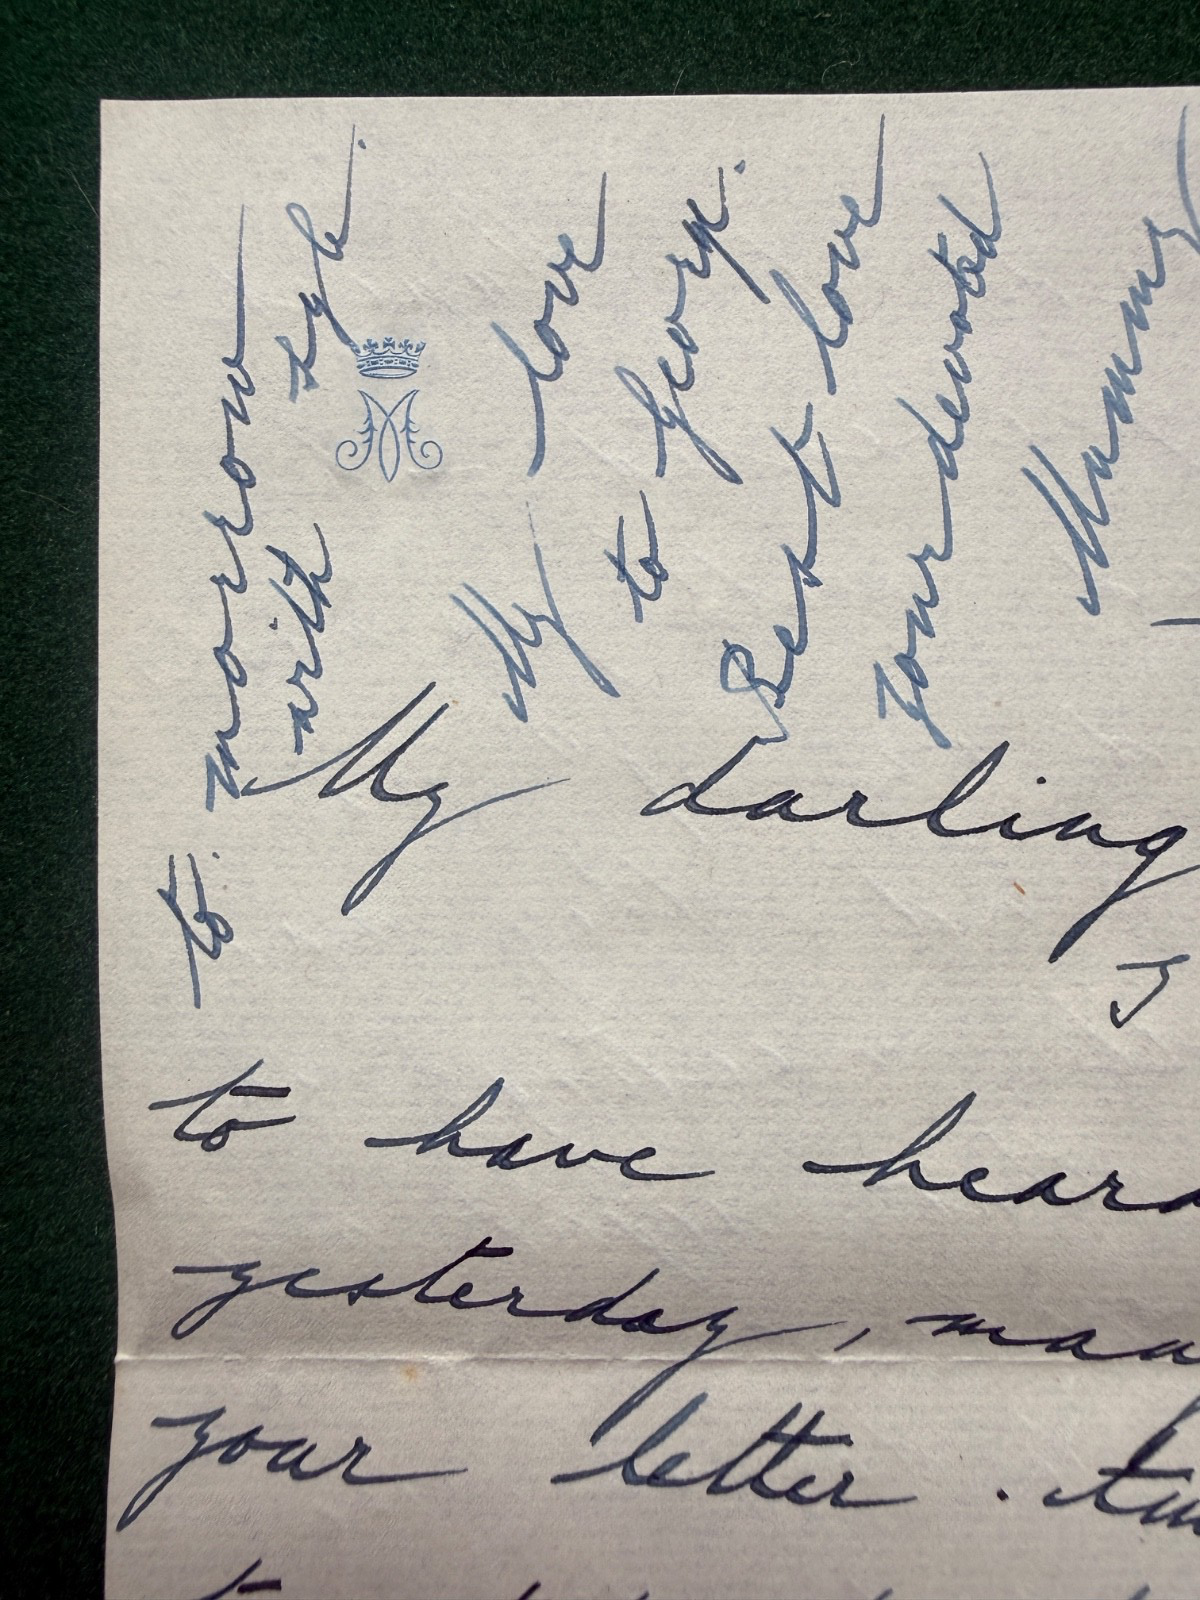 to. morrow
with
My love
to George.
Best love
Your devoted
Mummy
My darling
I
to have heard
yesterday, man
your letter.
to